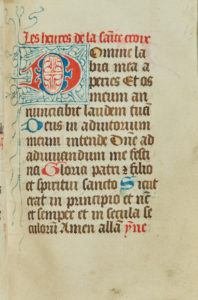 Les heures de la sacte croix
Domine la
bia mea a
peries Et os
meum an
nunciabit laudem tuā
Deus in adiutorium
meum intende Dne ad
adiuuandum me festi
na Gloria patri & filio
et spiritui sancto Sicut
erat in principio et nūc
et semper et in secula se
culorum Amen alla yne